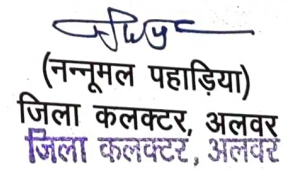 (नन्नूमल पहाड़िया)
जिला कलक्टर, अलवर
जिला कलक्टर, अलवर